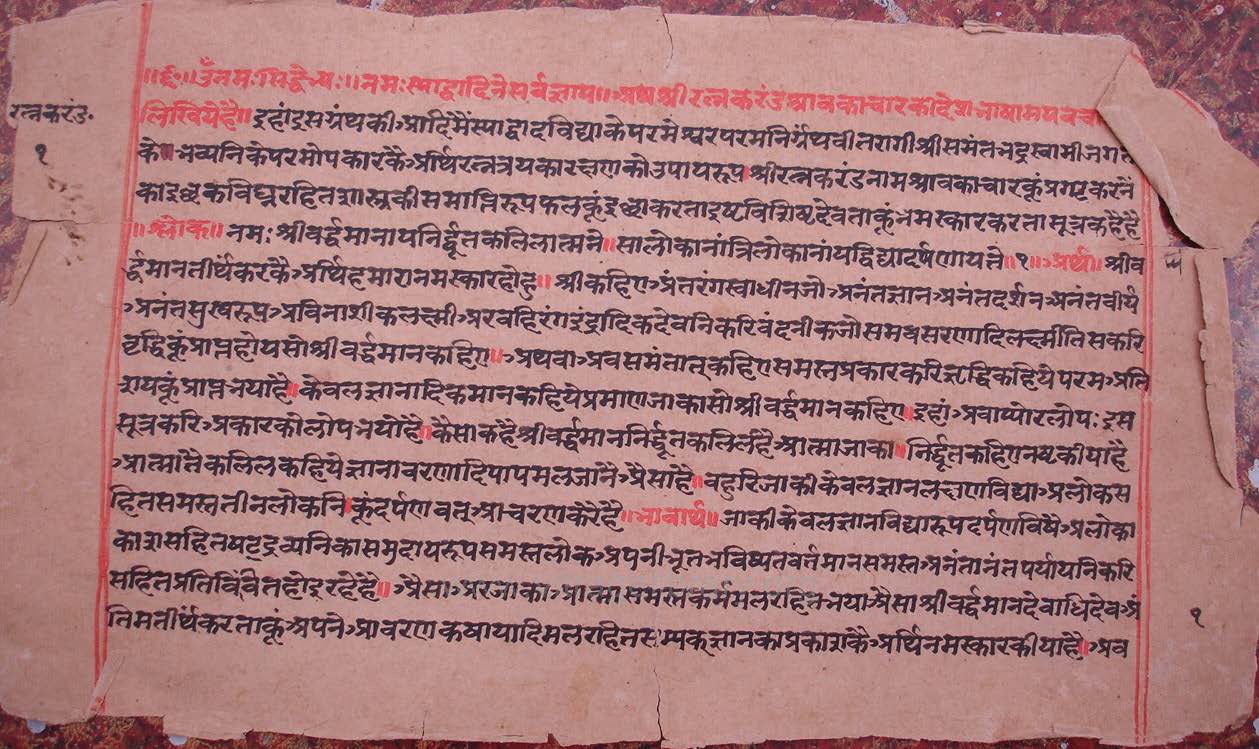 रत्नकरंड॰
१
॥र्द॰॥ॐनमःसिद्धेभ्यः॥नमःस्याद्वादिनेसर्वज्ञाय॥अथश्रीरत्नकरंडश्रावकाचारकीदेशभाषामयवच
लिखियेहै॥इहांइसग्रंथकीआदिमैंस्याद्वादविद्याकेपरमेश्वरपरमनिर्ग्रंथवीतरागीश्रीसमंतभद्रस्वामीजगत
के॥भव्यनिकेपरमोपकारकैअर्थिरत्नत्रयकारक्षणकोउपायरूपश्रीरत्नकरंडनामश्रावकाचारकूंप्रगटकरनें
काइछकविघ्नरहितशास्त्रकीसमाप्तिरूपफलकूंइछाकरताइष्टविशिष्टदेवताकूंनमस्कारकरतासूत्रकहैहै
॥श्लोक॥नमःश्रीवर्द्धमानायनिर्द्धूतकलिलात्मने॥सालोकानांत्रिलोकानांयद्विद्यादर्पणायते॥१॥अर्थ॥श्रीव
र्द्धमानतीर्थंकरकैअर्थिहमारानमस्कारहोहु॥श्रीकहिएअंतरंगस्वाधीनजोअनंतज्ञानअनंतदर्शनअनंतवीर्य
अनंतसुखरूपअविनाशीकलक्ष्मीअरवहिरंगइंद्रादिकदेवनिकरिवंदनीकजोसमवसरणादिलक्ष्मीतिसकरि
वृद्धिकूंप्राप्तहोयसोश्रीवर्द्धमानकहिए॥अथवाअवसमंतात्कहिएसमस्तप्रकारकरिऋद्धिकहियेपरमअति
शयकूंप्राप्तभयाहै॥केवलज्ञानादिकमानकहियेप्रमाणजाकासोश्रीवर्द्धमानकहिए॥इहांअवाप्योरलोपःइस
सूत्रकरिअकारकोलोपभयोहै॥कैसाकहैश्रीवर्द्धमाननिर्द्धूतकलिलहैआत्माजाका॥निर्द्धूतकहिएनष्टकीयाहै
आत्मातैकलिलकहियेज्ञानावरणादिपापमलजानैऐसाहै॥वहुरिजाकीकेवलज्ञानलक्षणविद्याअलोकस
हितसमस्ततीनलोकनिकूंदर्पणवत्आचरणकरैहै॥भावार्थ॥जाकीकेवलज्ञानविद्यारूपदर्पणविषैअलोका
काशसहितषट्द्रव्यनिकासमुदायरूपसमस्तलोकअपनीभूतभविष्यतवर्तमानसमस्तअनंतानंतपर्यायनिकरि
सहितप्रतिविंवितहोइरहेहै॥ऐसाअरजाकाआत्मासमस्तकर्ममलरहितभयाऐसाश्रीवर्द्धमानदेवाधिदेवअं
तिमतीर्थंकरताकूंअपनेआवरणकषायादिमलरहितसम्यक्ज्ञानकाप्रकाशकैअर्थिनमस्कारकीयाहै॥अव
१